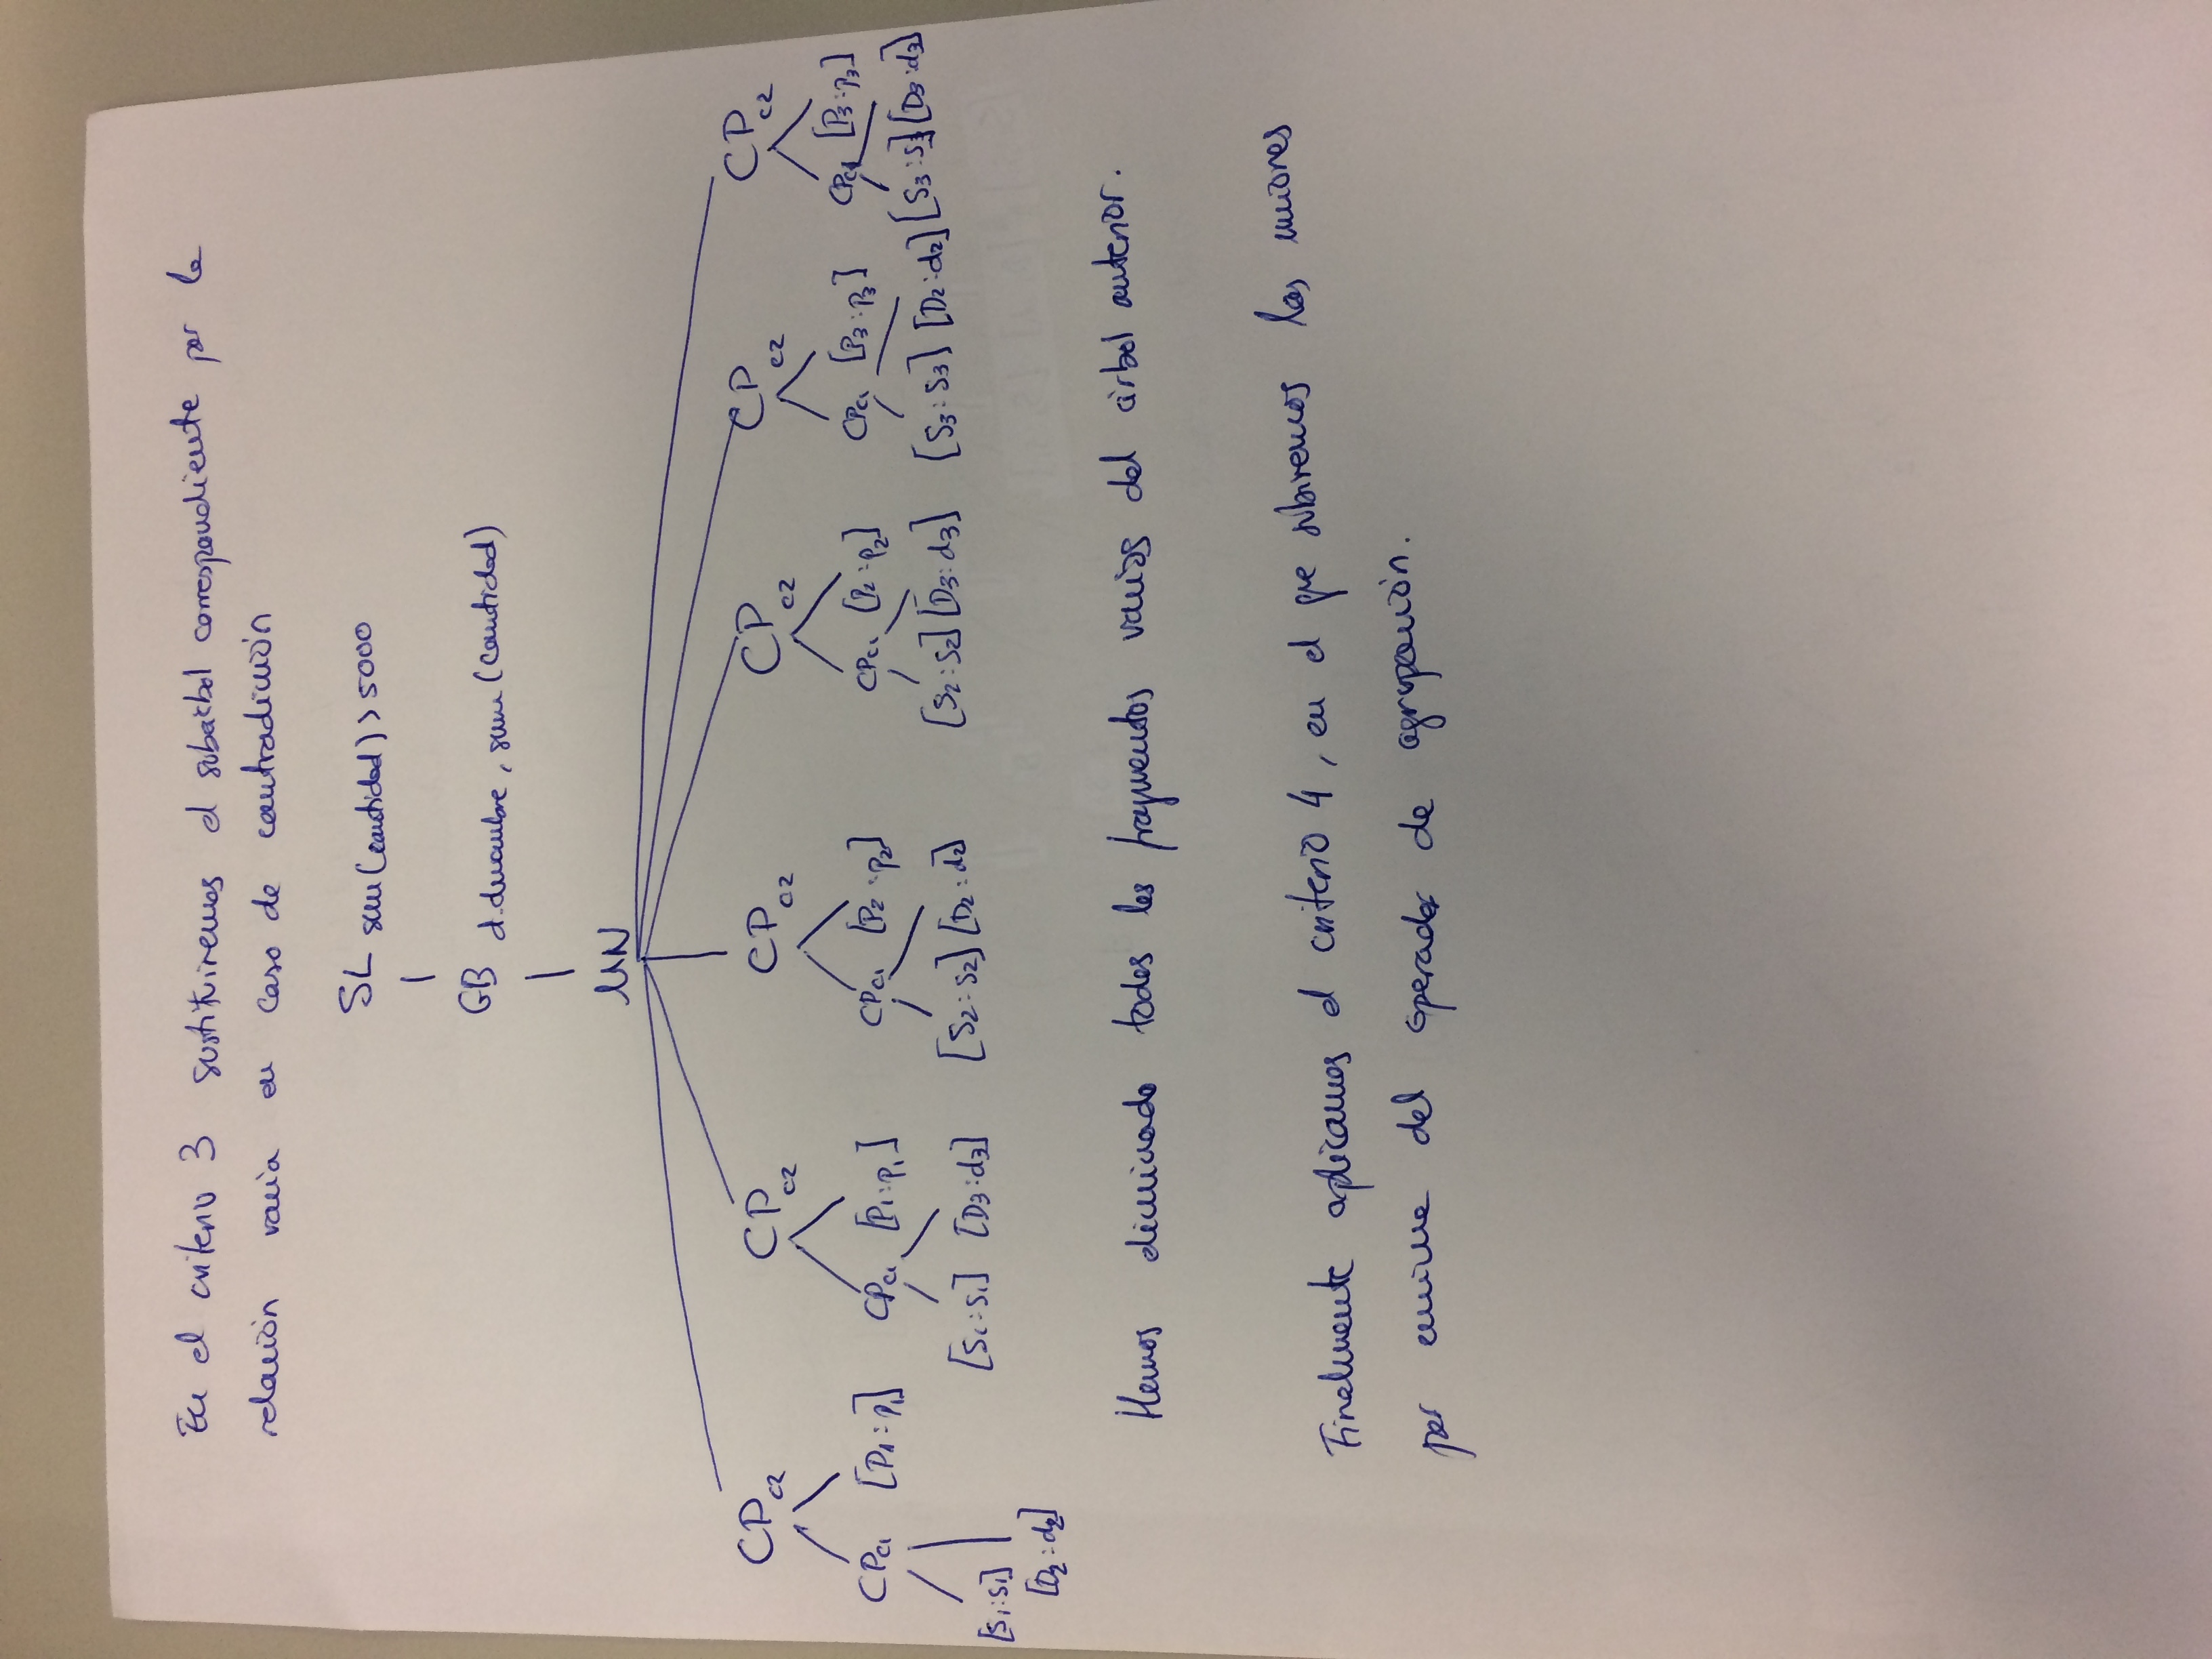 En el criterio 3 sustituiremos el subárbol correspondiente por la
relación vacía en caso de contradicción
SL sum(cantidad) > 5000
GB d.dnombre, sum(cantidad)
UN
CP c2 CP c2 CP c2 CP c2 CP c2 CP c2
CP c1 [P1:p1] CP c1 [P1:p1] CP c1 [P2:p2] CP c1 [P2:p2] CP c1 [P3:p3] CP c1 [P3:p3]
[S1:s1] [S1:s1] [D3:d3] [S2:s2] [D2:d2] [S2:s2] [D3:d3] [S3:s3] [D2:d2] [S3:s3] [D3:d3]
[D2:d2]
Hemos eliminado todos los fragmentos vacíos del árbol anterior.
Finalmente aplicamos el criterio 4, en el que subiremos las uniones
por encima del operador de agrupación.